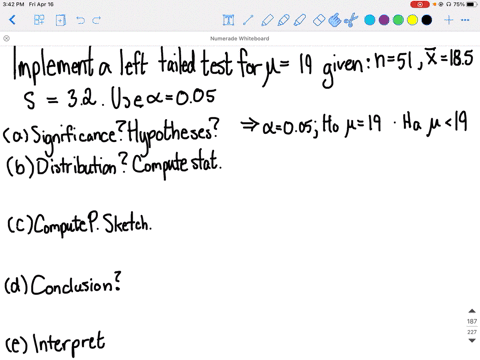 3:42 PM Fri Apr 16
75%
Numerade Whiteboard
Implement a left tailed test for μ = 19 given: n=51, x̄=18.5
S = 3.2. Use α=0.05
(a) Significance? Hypotheses? ⇒ α=0.05; Ho μ=19 · Ha μ<19
(b) Distribution? Compute stat.
(c) Compute P. Sketch.
(d) Conclusion?
(e) Interpret
187
227